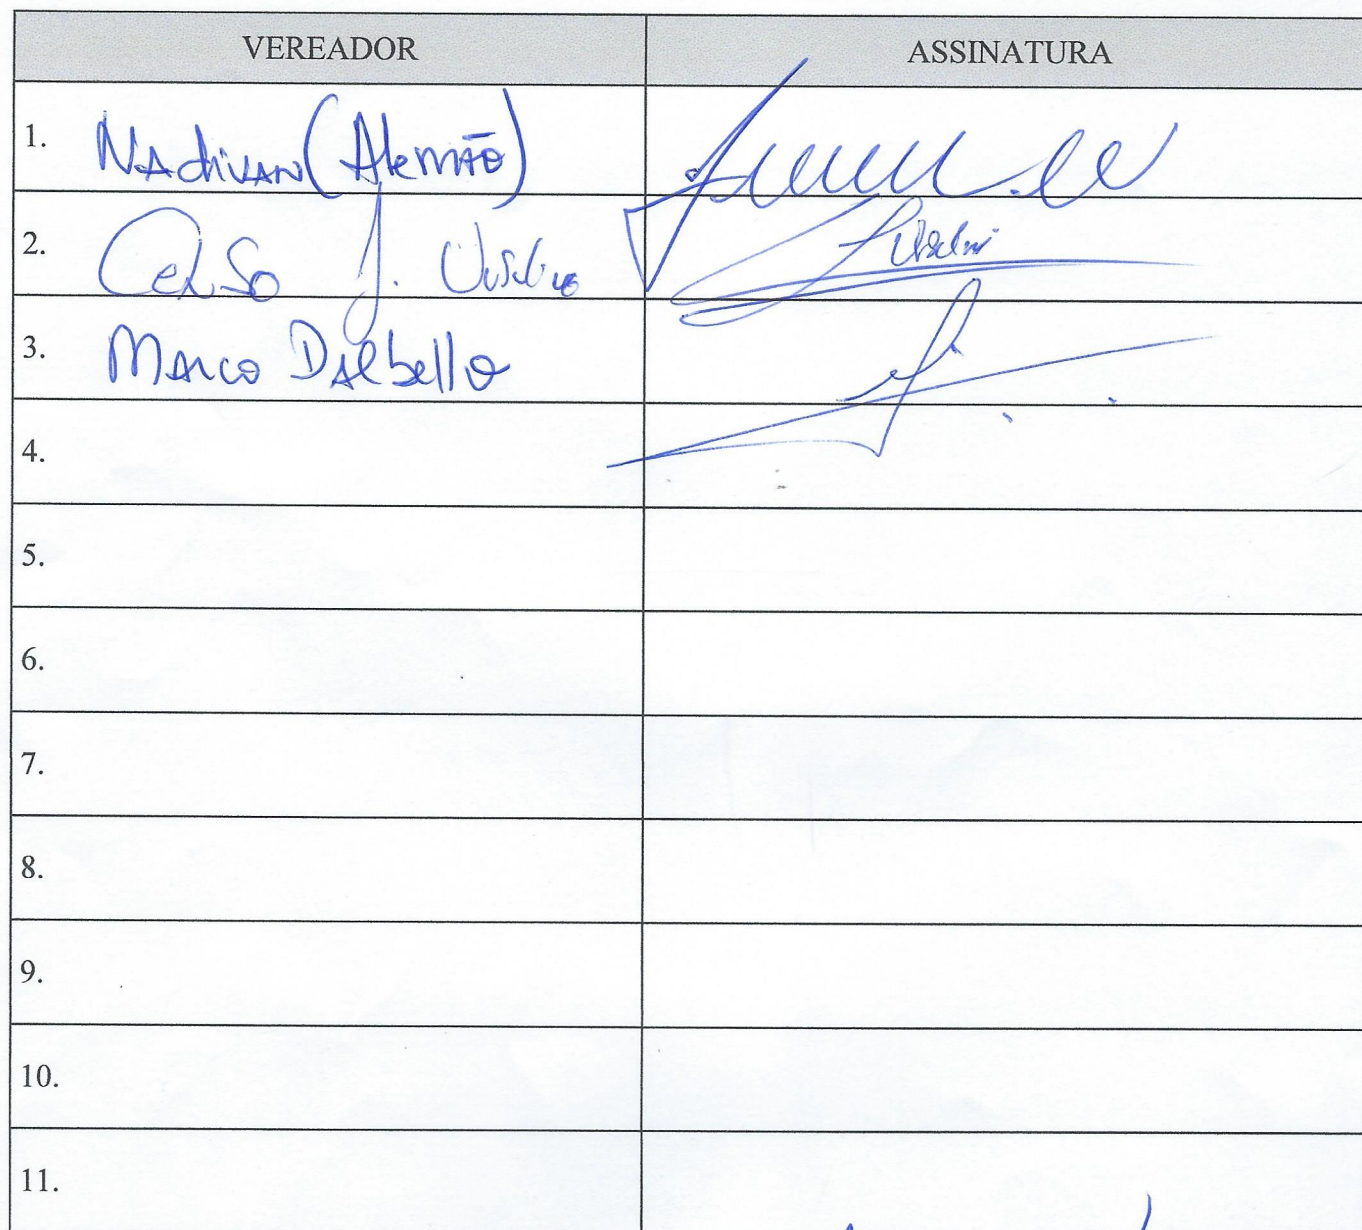 VEREADOR ASSINATURA
1. Nadivan (Alemão)
2. Celso J.
3. Marco Dalbello
4.
5.
6.
7.
8.
9.
10.
11.